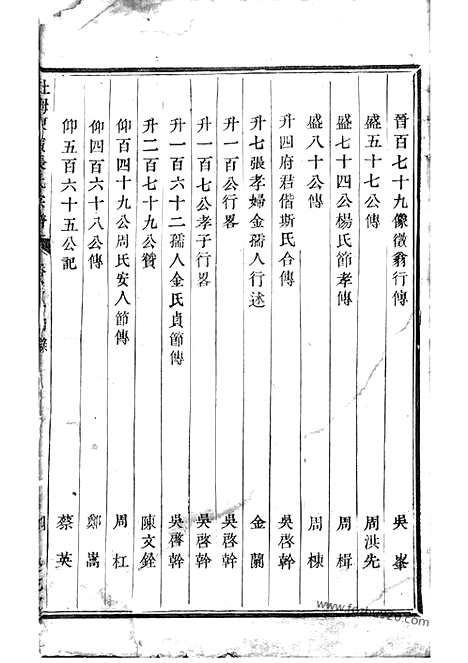 晉百七十九像徵翁行傳 吳峯
盛五十七公傳 周洪先
盛七十四公楊氏節孝傳 周楫
盛八十公傳 周棟
升四府君偕斯氏合傳 吳啓幹
升七張孝婦金孺人行述 金蘭
升一百公行畧 吳啓幹
升一百七公孝子行畧 吳啓幹
升一百六十二孺人金氏貞節傳 吳啓幹
升二百七十九公贊 陳文銓
仰百四十九公周氏安人節傳 周杠
仰四百六十八公傳 鄭嵩
仰五百六十五公記 蔡英
四